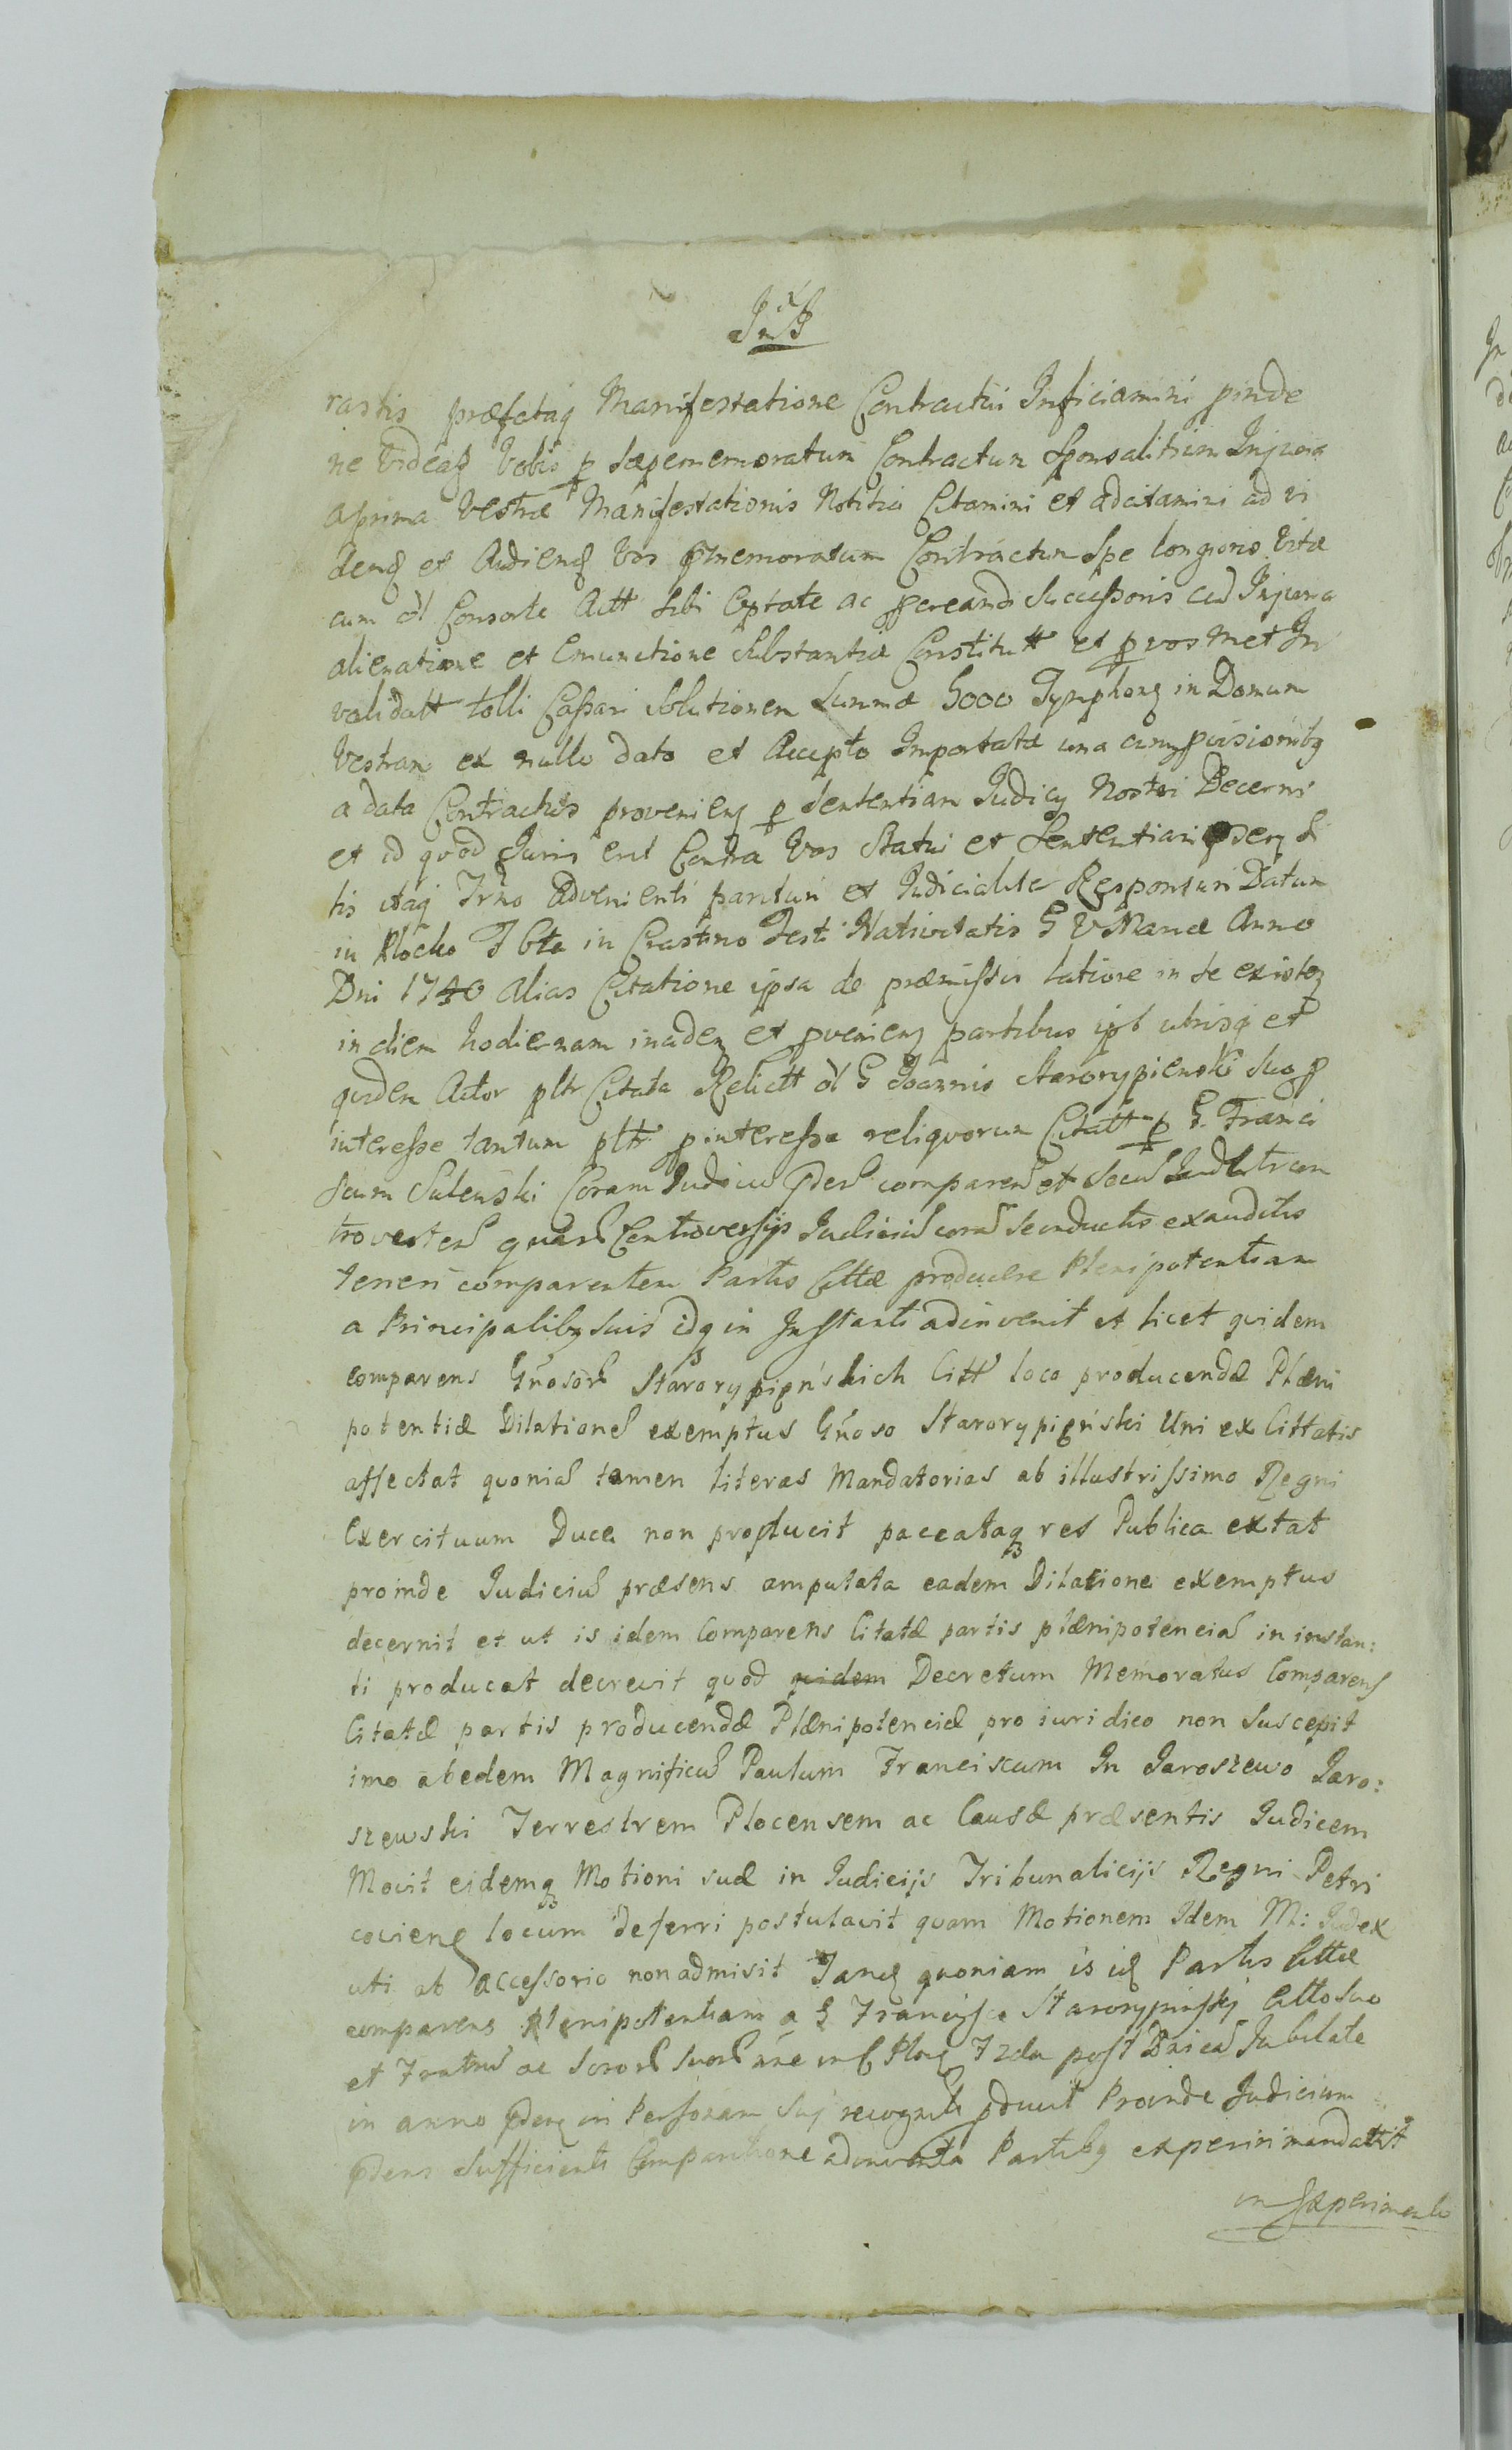 rastis præfataq Manifestatione Contractui Inficiamini pinde
ne Videatz Vobis p sæpememoratum Contractum Sponsalitium Injuria
a prima Vestræ Manifestationis Notitia Citamini et adcitamini ad vi
dend et Audiend Vos pmemoratum Contractum Spe longioris Vitæ
cum ol Consorte Actt sibi Optate ac pcreando Successoris ced Injuria
alienatione et Emunctione Substantiæ Constitutt et p vosmet In
validatt tolli Cassari Solutionem Summæ 5000 Tymphonz in Domum
Vestram ex nullo dato et Accepto Importatæ una cum pvisionibq
a data Contractus provenienz p Sententiam Judicy Nostri Decerni
et id quod Juris erit Contra Vos Statui et Sententiari psenz Si
tis itaq Trno Advenienti parituri et Judicialiter Responsuri Datum
in Plocko Fbta in Crastino Festi Nativitatis B V Mariæ Anno
Dni 1740 Alias Citatione ipsa de præmissis latiore in se existenz
in diem hodiernam incidenz et pvenienz partibus ipt utrisq et
quidem Actor pltr Citata Relictt ol G Joannis Stororypienski Suo p
interesse tantum pltr p interesse reliquorum Citatt p G. Franci
scum Sulenski Coram Judicio pdes comparens et
troverten quars Controversijs Judiciu coram se inductis exauditis
teneri comparentem Partis Cittæ producere Plenipotentiam
a Principalibq Suis idq in Instanti adinvenit et licet quidem
comparens Gnosor Starorypięńskich Citt loco producendæ Plæni
potentiæ Dilationes exemptus Gnoso Starorypięński Uni ex Cittatis
affectat quonia tamen literas Mandatorias ab illustrissimo Regni
Exercituum Duce non producit paccataq res Publica extat
proinde Judiciu præsens amputata eadem Dilatione exemptus
decernit et ut is idem Comparens Citatæ partis plænipotencia in instan:
ti producat decrevit quod quidem Decretum Memoratus Comparens
Citatæ partis producendæ Plænipotenciæ pro iuridico non Suscepit
imo ab edem Magnificu Paulum Franciscum In Jaroszewo Jaro:
szewski Terrestrem Plocensem ac Causæ præsentis Judicem
Movit eidemq Motioni suæ in Judicijs Tribunalicijs Regni Petri
coviens locum deferri postulavit quam Motionem Idem M: Judex
uti ab accessorio non admisit Tand quoniam is id Partis Cittæ
comparens Plenipotentiam a G Francisco Starorypinsky Citto Suo
et Fratru ac Soror Suor nne in C Plog Frda post Dnica Jubilate
in anno pden in Personam Sui recognit pduxit Proinde Judicium
pdens Sufficienti Comparitione adinventa Partibq experiri mandattit
in Experimento